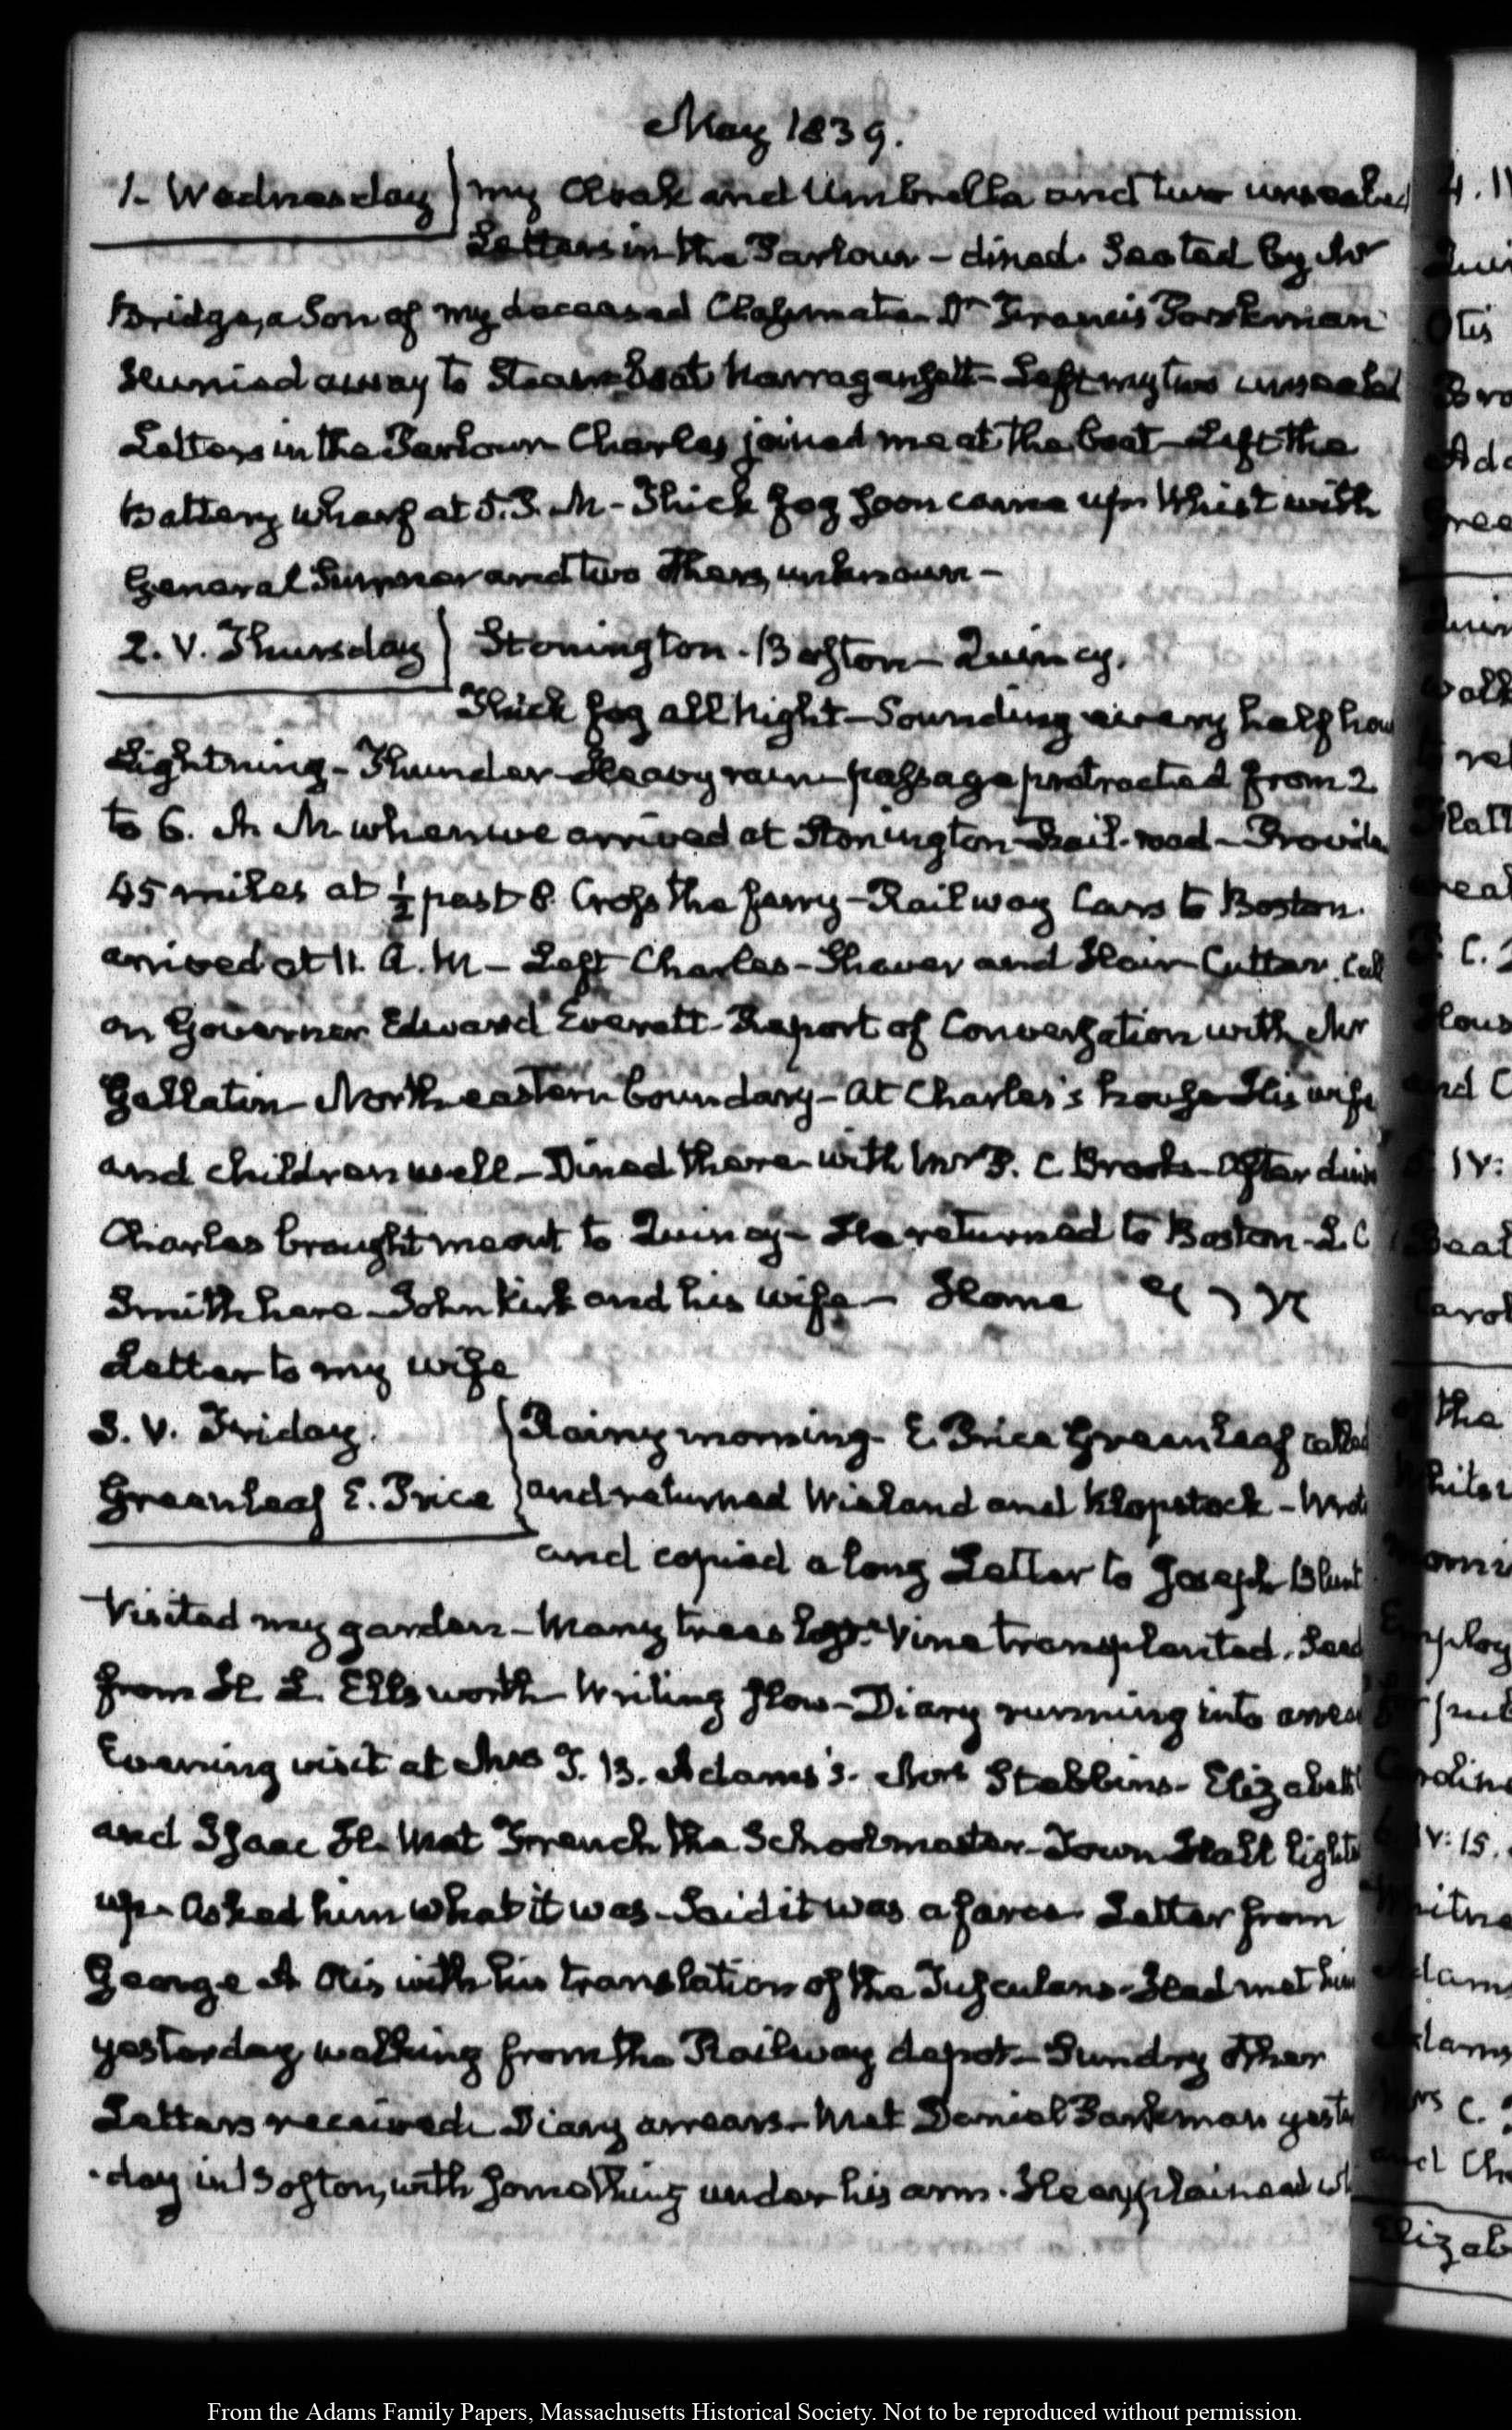 May 1839.
1. Wednesday} my Cloak and Umbrella and two unsealed
Letters in the Parlour - dined. Seated by Mr
Bridge, a Son of my deceased Classmate. Dr Francis Parkman
Hurried away to Steam-boat Narragansett - Left my two unsealed
Letters in the Parlour Charles joined me at the boat - Left the
Battery wharf at 5. P. M - Thick fog soon came up. Whist with
General Sumner and two others, unknown -
2. V. Thursday} Stonington. Boston - Quincy.
Thick fog all Night - Sounding every half hou
Lightning - Thunder - Heavy rain - passage protracted from 2
to 6. A M when we arrived at Stonington - Rail-road - Provide
45 miles at ½ past 8. Cross the ferry - Railway Cars to Boston.
arrived at 11. A. M - Left Charles - Shaver and Hair-Cutter. Call
on Governor Edward Everett - Report of Conversation with Mr
Gallatin - North eastern boundary - At Charles's house His wife
and children well - Dined there - with Mr P. C. Brooks - After din
Charles brought me out to Quincy - He returned to Boston - L. C
Smith here - John Kirk and his wife - Home
Letter to my wife
3. V. Friday. {Rainy morning - E. Price Greenleaf called
Greenleaf E. Price {and returned Wieland and Klopstock - Wrote
and copied a long Letter to Joseph Blunt
Visited my garden - Many trees lost. Vine transplanted. Seed
from H. L. Ellsworth - Writing slow - Diary running into arrea
Evening visit at Mrs T. B. Adams's. Mrs Stebbins - Elizabeth
and Isaac H. Met French the Schoolmaster - Town Hall lighte
up - Asked him what it was - Said it was a farce - Letter from
George A Otis with his translation of the Tusculans - Had met him
yesterday walking from the Railway depot - Sundry other
Letters received - Diary arrears - Met Daniel Parkman yester
-day in Boston, with something under his arm. He explained wh
From the Adams Family Papers, Massachusetts Historical Society. Not to be reproduced without permission.